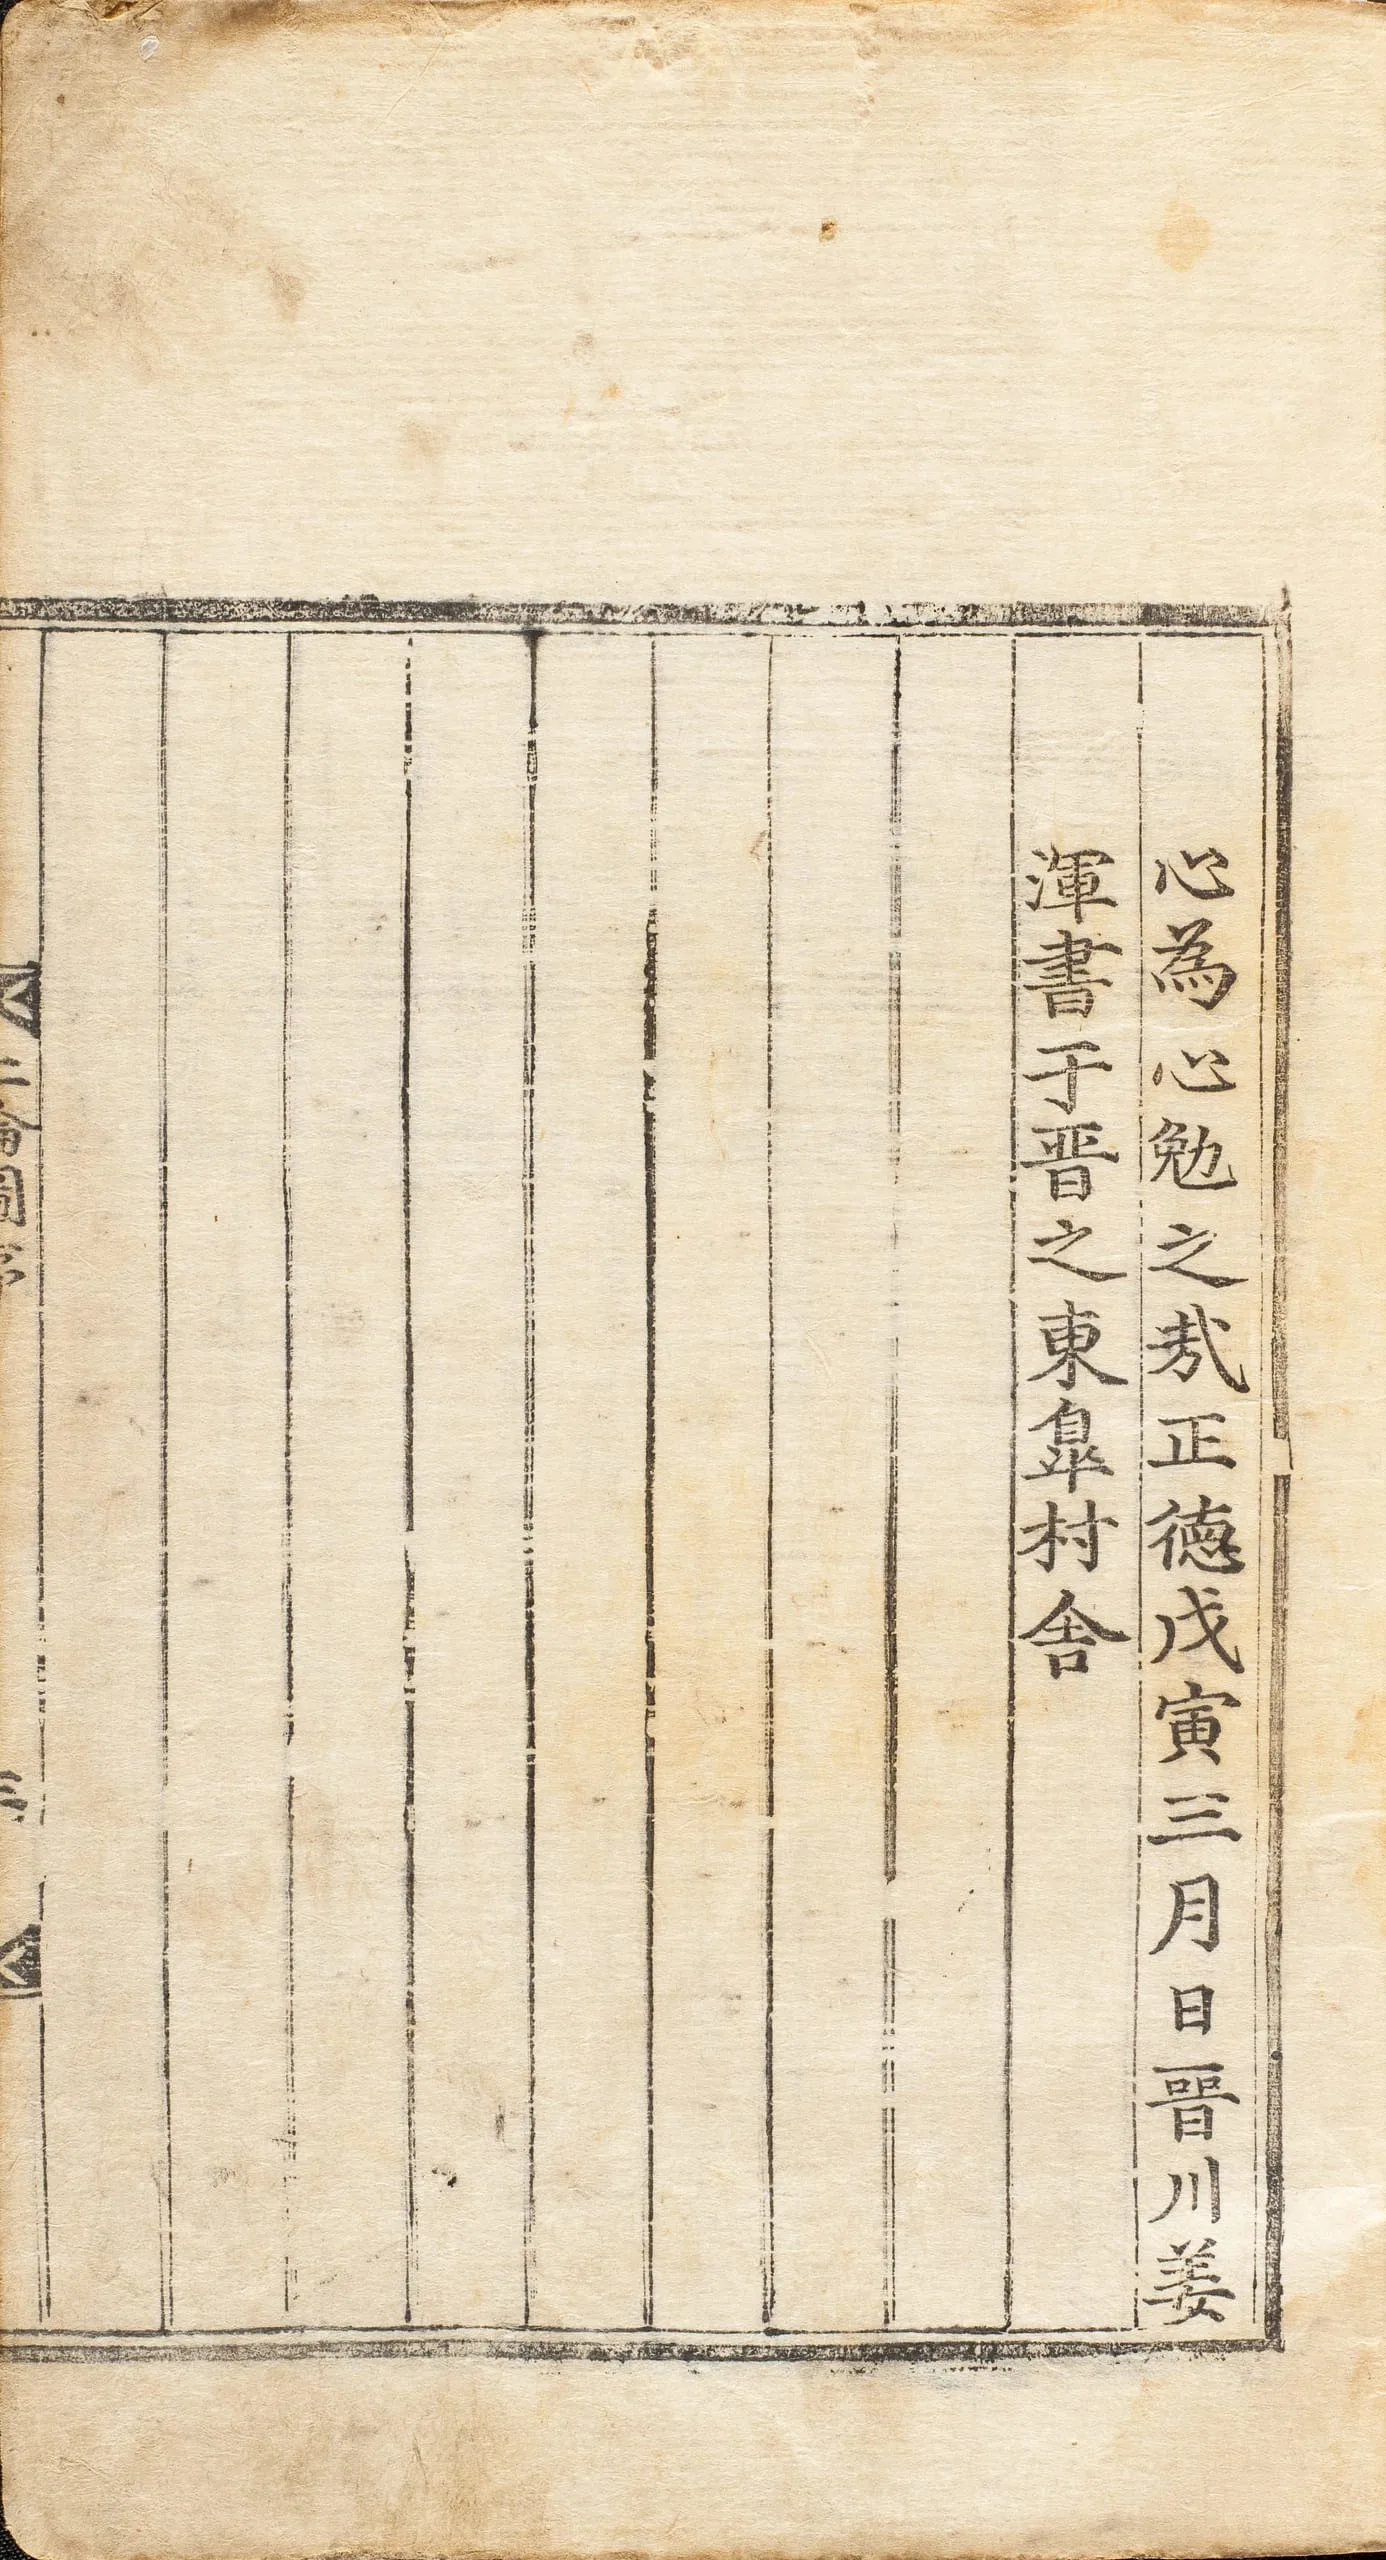 心為心勉之㢤正德戊寅三月日晉川姜
渾書于晋之東皐村舍
二倫圖序